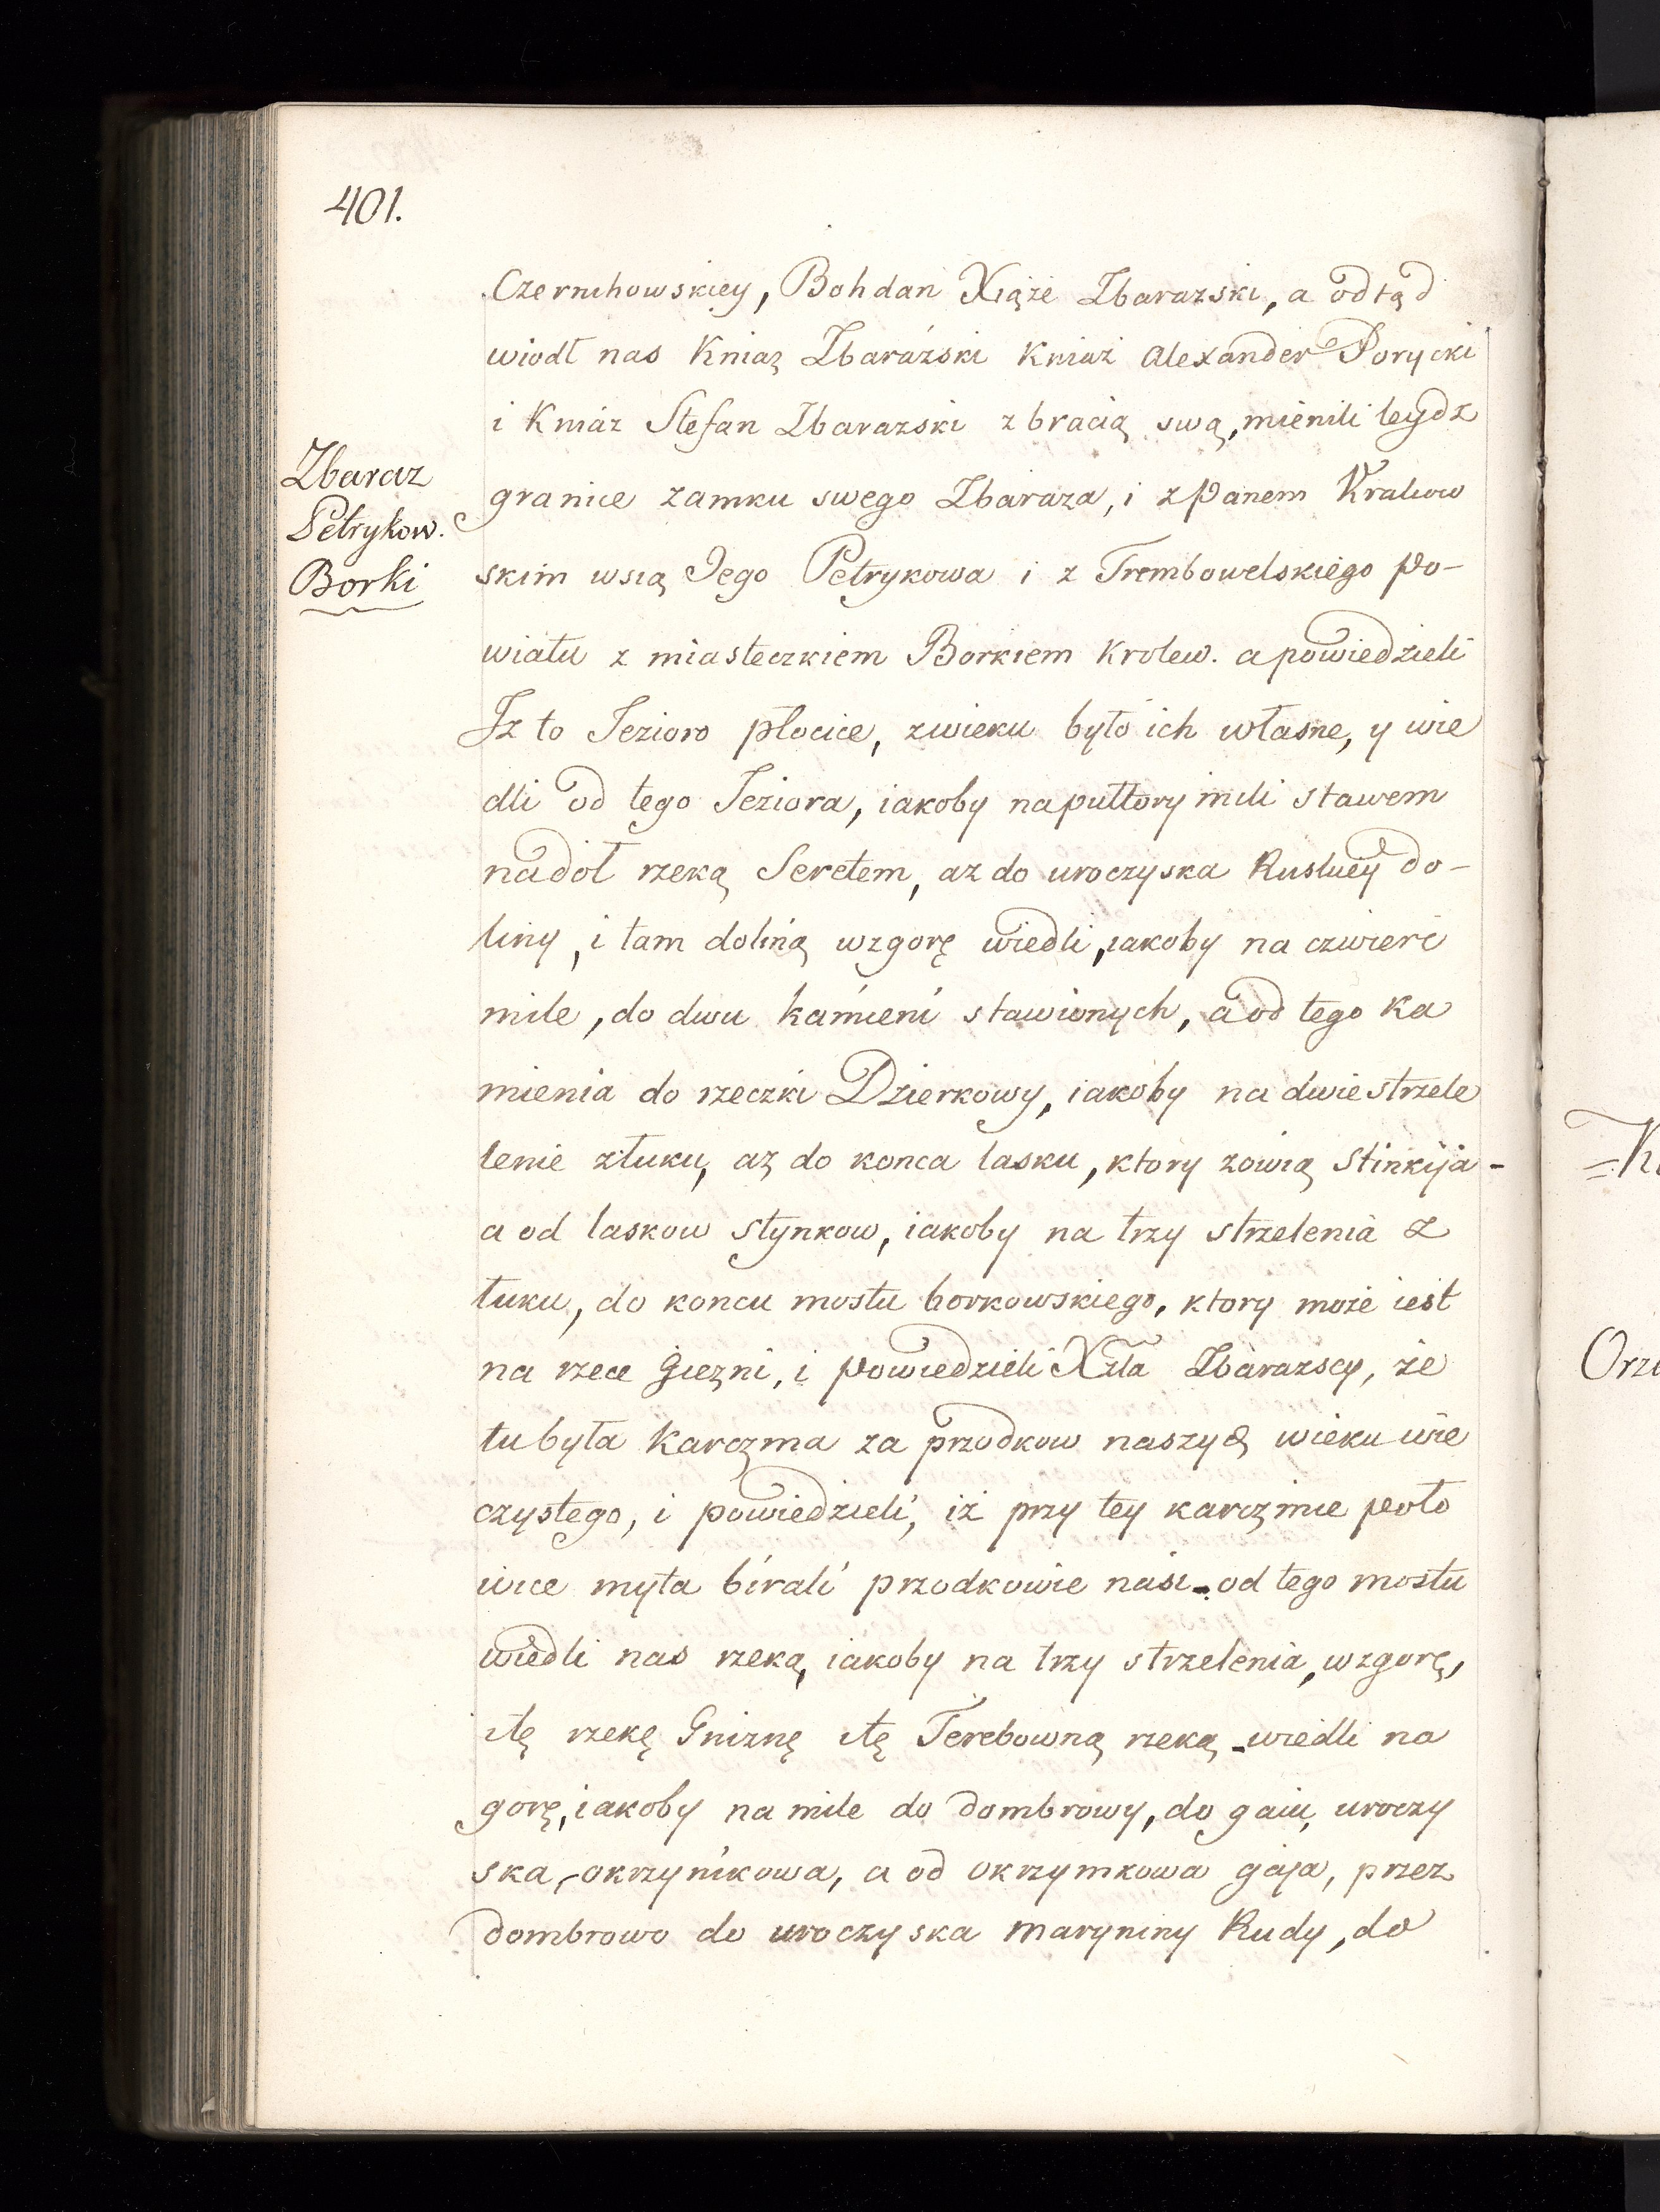 401.
Czernihowskiey, Bohdan Xiąże Zbarazski, a odtąd
wiodł nas Kniaz Zbarázski Kniaź Alexander Porycki
i Kniáz Stefan Zbarazski z bracią swą, mienili leydz
Zbaraz
Petrykow.
Borki
granice zamku swego Zbaraza, i z Panem Krakow
skim wsią Jego Petrykowa i z Trembowelskiego po-
wiatu z miasteczkiem Borkiem Krolew. a powiedzieli
Iz to Jezioro płocice, zwieku było ich własne, y wie
dli od tego Jeziora, iakoby na pułtory mili stawem
nadoł rzeką Seretem, az do uroczyska Ruskiey do-
liny, i tam doliną wzgorę wiedli, iakoby na czwierć
mile, do dwu kamieni stawionych, a od tego Ka
mienia do rzeczki Dzierkowy, iakoby na dwie strzele
lenie złuku, az do konca lasku, ktory zowią Stinkija-
a od laskow stynkow, iakoby na trzy strzelenia z
łuku, do koncu mostu borkowskiego, ktory może iest
na rzece Giezni, i powiedzieli Xżta Zbarazscy, że
tu była Karczma za przodkow naszych wieku wie
czystego, i powiedzieli, iż przy tey karczmie poło
wice myta birali przodkowie nasi - od tego mostu
wiedli nas rzeką, iakoby na trzy strzelenia, wzgorę,
itę rzekę Gniznę itę Terebowną rzeką - wiedli na
gorę, iakoby na mile do dombrowy, do gaiu, uroczy
ska, okrzynikowa, a od okrzymkowa gaja, przez
dombrowo do uroczyska maryniny Rudy, do